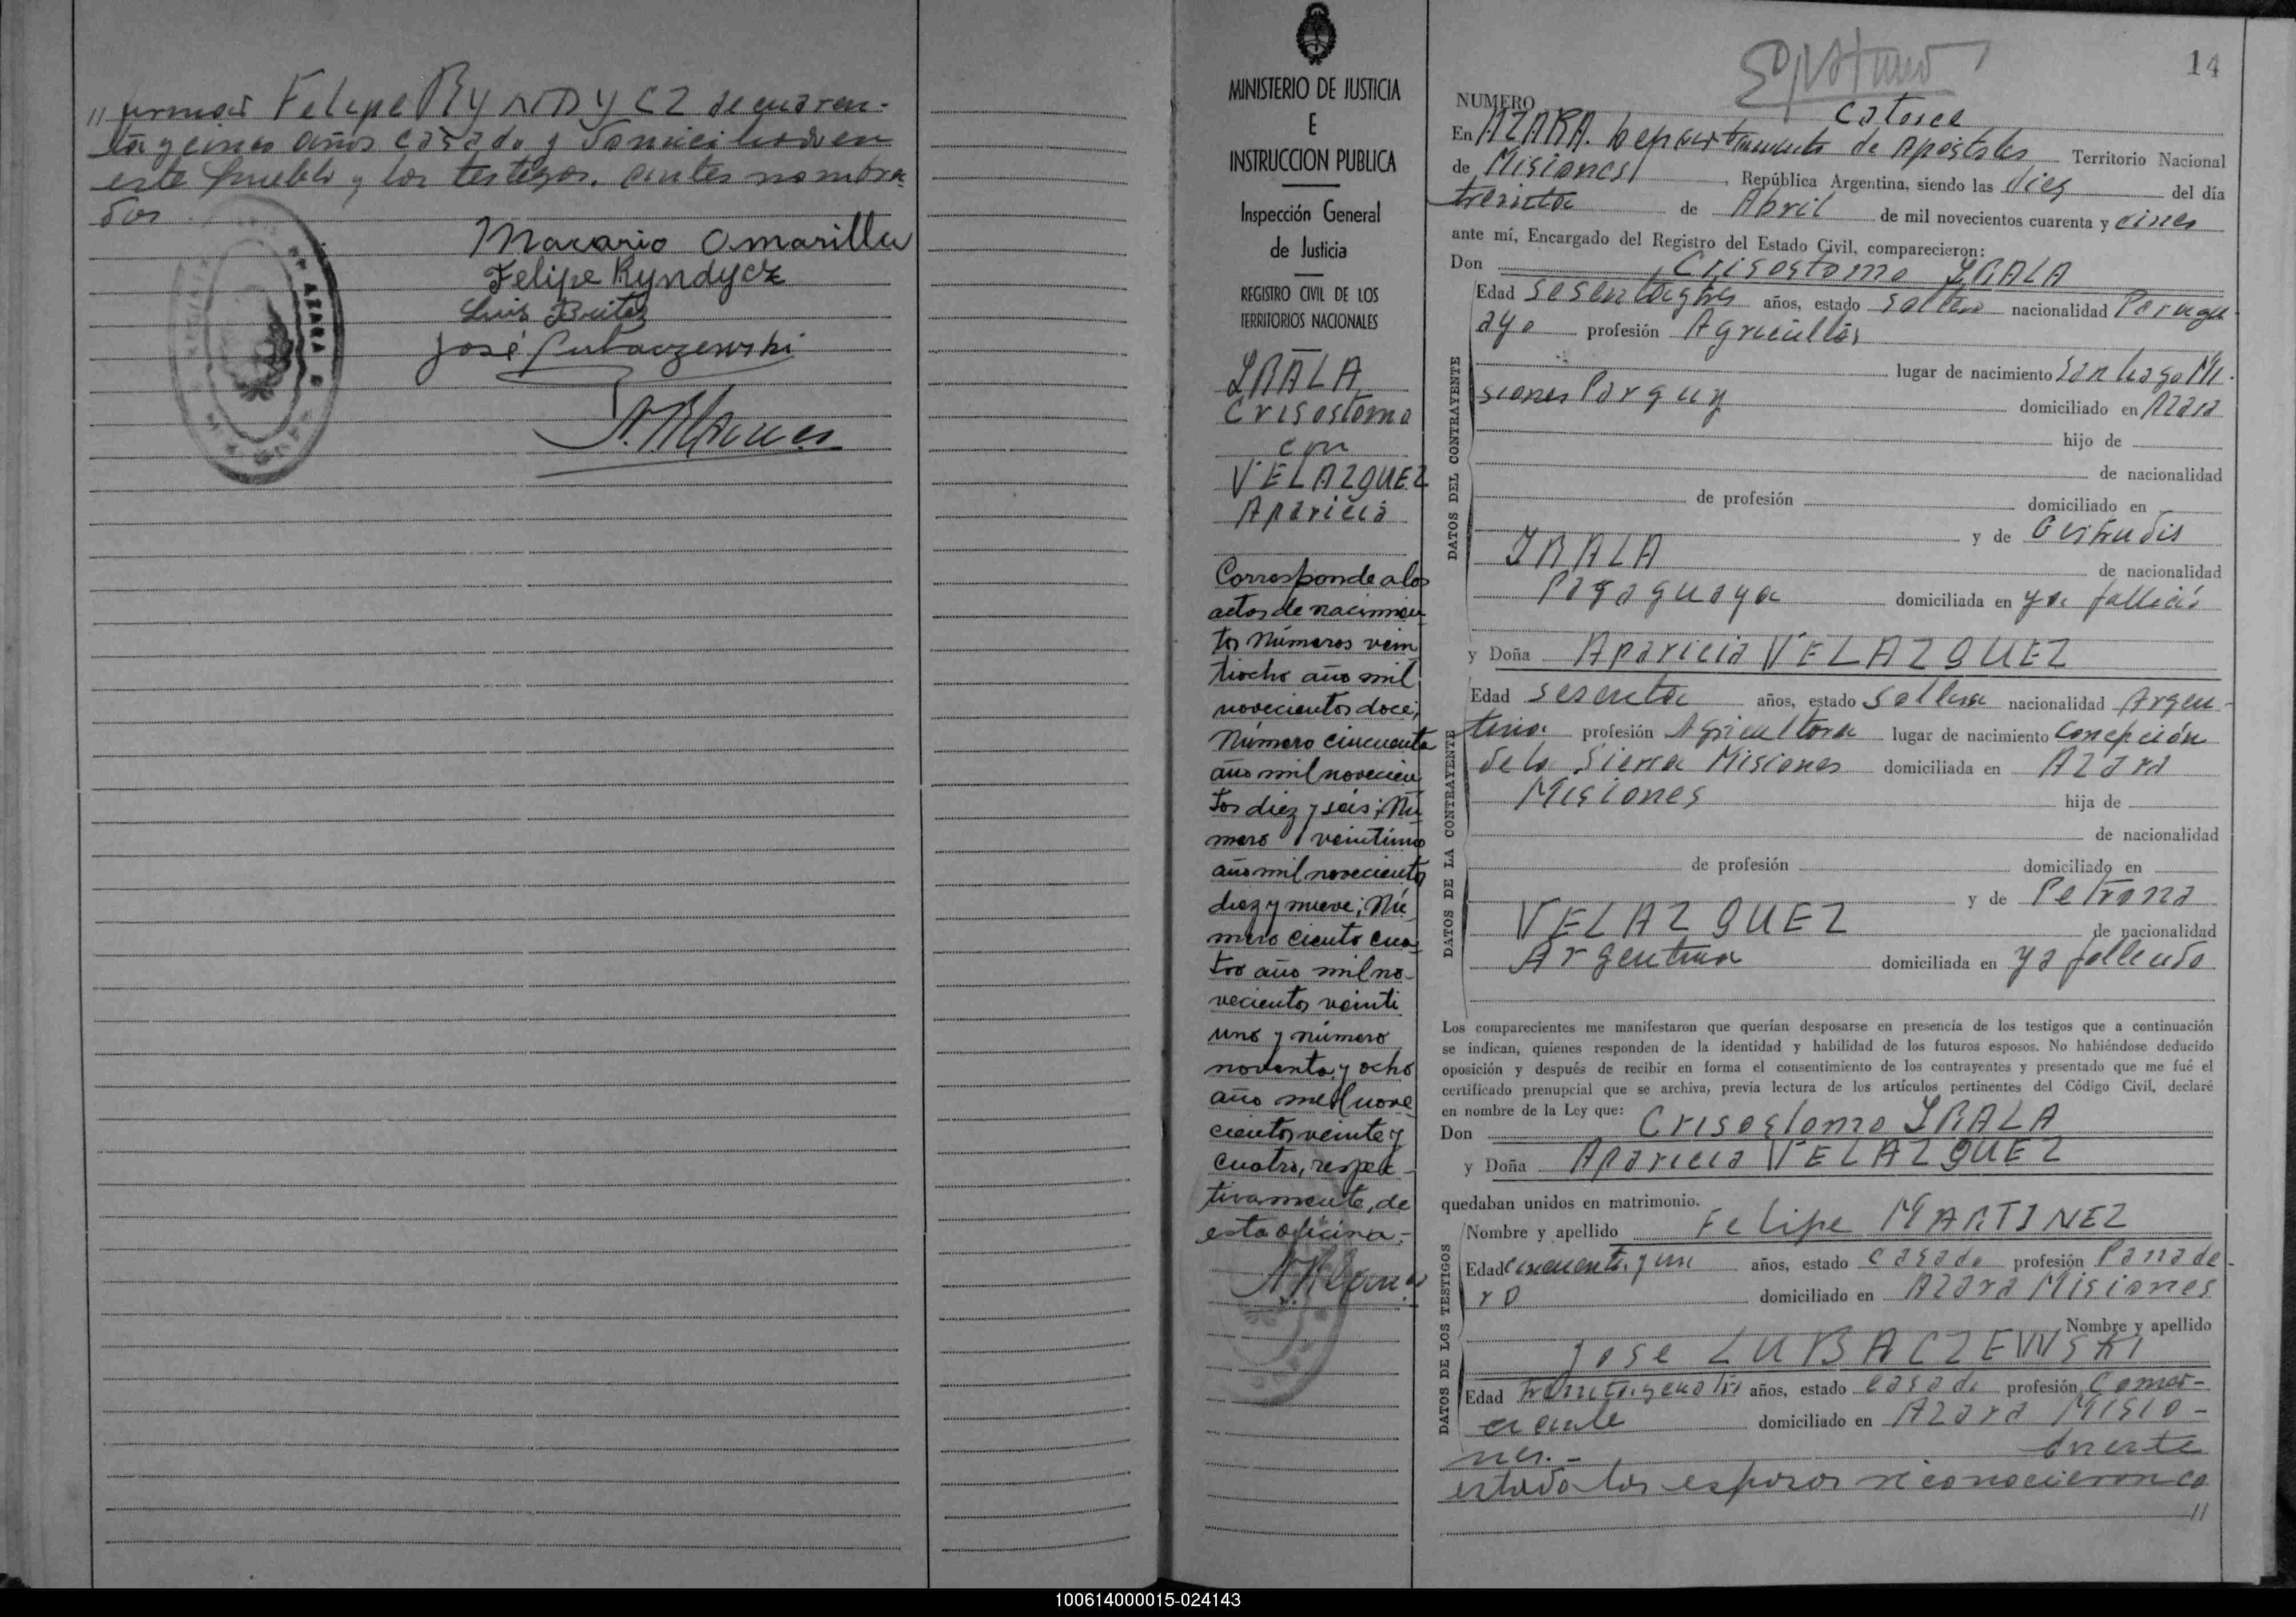 // firmar Felipe RYNDYCZ de cuaren-
ta y cinco años casado y domiciliado en
este pueblo y los testigos. antes nombra-
dos
AZARA
Macario Amarilla
Felipe Ryndycz
Luis Britez
José Lubaczewski
MINISTERIO DE JUSTICIA
E
INSTRUCCION PUBLICA
Inspección General
de Justicia
REGISTRO CIVIL DE LOS
TERRITORIOS NACIONALES
IRALA
Crisostomo
con
VELAZQUEZ
Aparicia
Corresponde a los
actos de nacimien
tos números vein
tiocho año mil
novecientos doce;
Número cincuenta
año mil novecien
tos diez y seis; Nú
mero veintiuno
año mil novecientos
diez y nueve; Nú
mero ciento cua
tro año mil no-
vecientos veinti
uno y número
noventa y ocho
año mil nove
cientos veinte y
cuatro, respec-
tivamente, de
esta oficina.-
14
NUMERO catorce
En AZARA. Departamento de Apóstoles Territorio Nacional
de Misiones, República Argentina, siendo las diez del día
treinta de Abril de mil novecientos cuarenta y cinco
ante mí, Encargado del Registro del Estado Civil, comparecieron:
Don Crisostomo IRALA
DATOS DEL CONTRAYENTE
Edad sesentaytres años, estado soltero nacionalidad Paragu-
ayo profesión Agricultor
lugar de nacimiento Santiago Mi-
siones Parguy domiciliado en Azara
hijo de
de nacionalidad
de profesión domiciliado en
y de Gertrudis
IRALA de nacionalidad
Paraguaya domiciliada en ya fallecio
y Doña Aparicia VELAZQUEZ
DATOS DE LA CONTRAYENTE
Edad sesenta años, estado soltera nacionalidad Argen-
tina profesión Agricultora lugar de nacimiento Concepción
de la Sierra Misiones domiciliada en Azara
Misiones hija de
de nacionalidad
de profesión domiciliado en
y de Petrona
VELAZQUEZ de nacionalidad
Argentina domiciliada en ya
Los comparecientes me manifestaron que querían desposarse en presencia de los testigos que a continuación
se indican, quienes responden de la identidad y habilidad de los futuros esposos. No habiéndose deducido
oposición y después de recibir en forma el consentimiento de los contrayentes y presentado que me fué el
certificado prenupcial que se archiva, previa lectura de los artículos pertinentes del Código Civil, declaré
en nombre de la Ley que:
Don Crisostomo IRALA
y Doña Aparicia VELAZQUEZ
quedaban unidos en matrimonio.
DATOS DE LOS TESTIGOS
Nombre y apellido Felipe MARTINEZ
Edad cincuenta y un años, estado casado profesión Panade-
ro domiciliado en Azara Misiones
Nombre y apellido
Jose LUBACZEWSKI
Edad treinta y cuatro años, estado casado profesión Comer-
ciante domiciliado en Azara Misio-
nes.- En este
estado los esposos reconocieron co
//
100614000015-024143